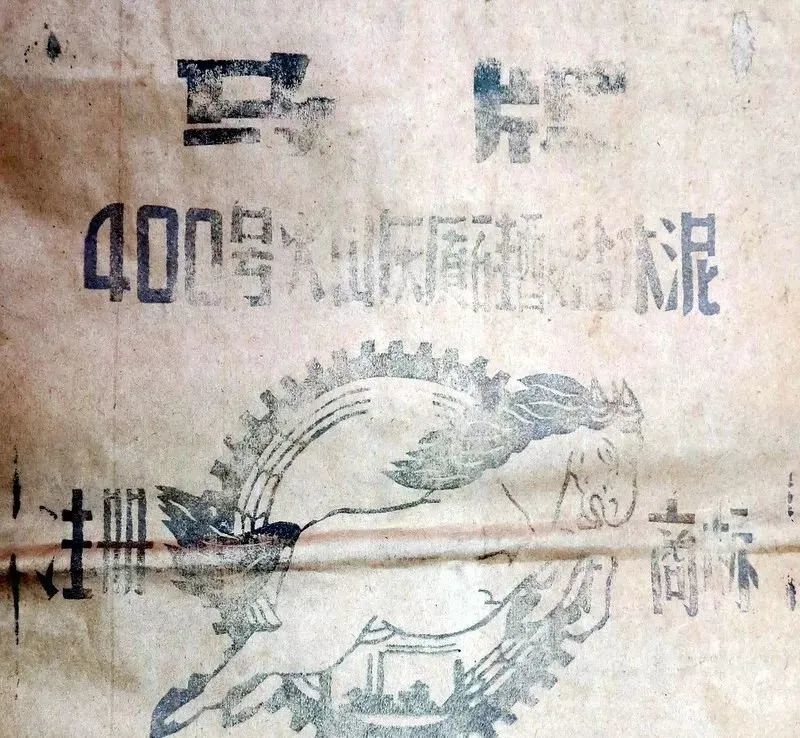 马牌
400号火山灰质硅酸盐水泥
注册 商标